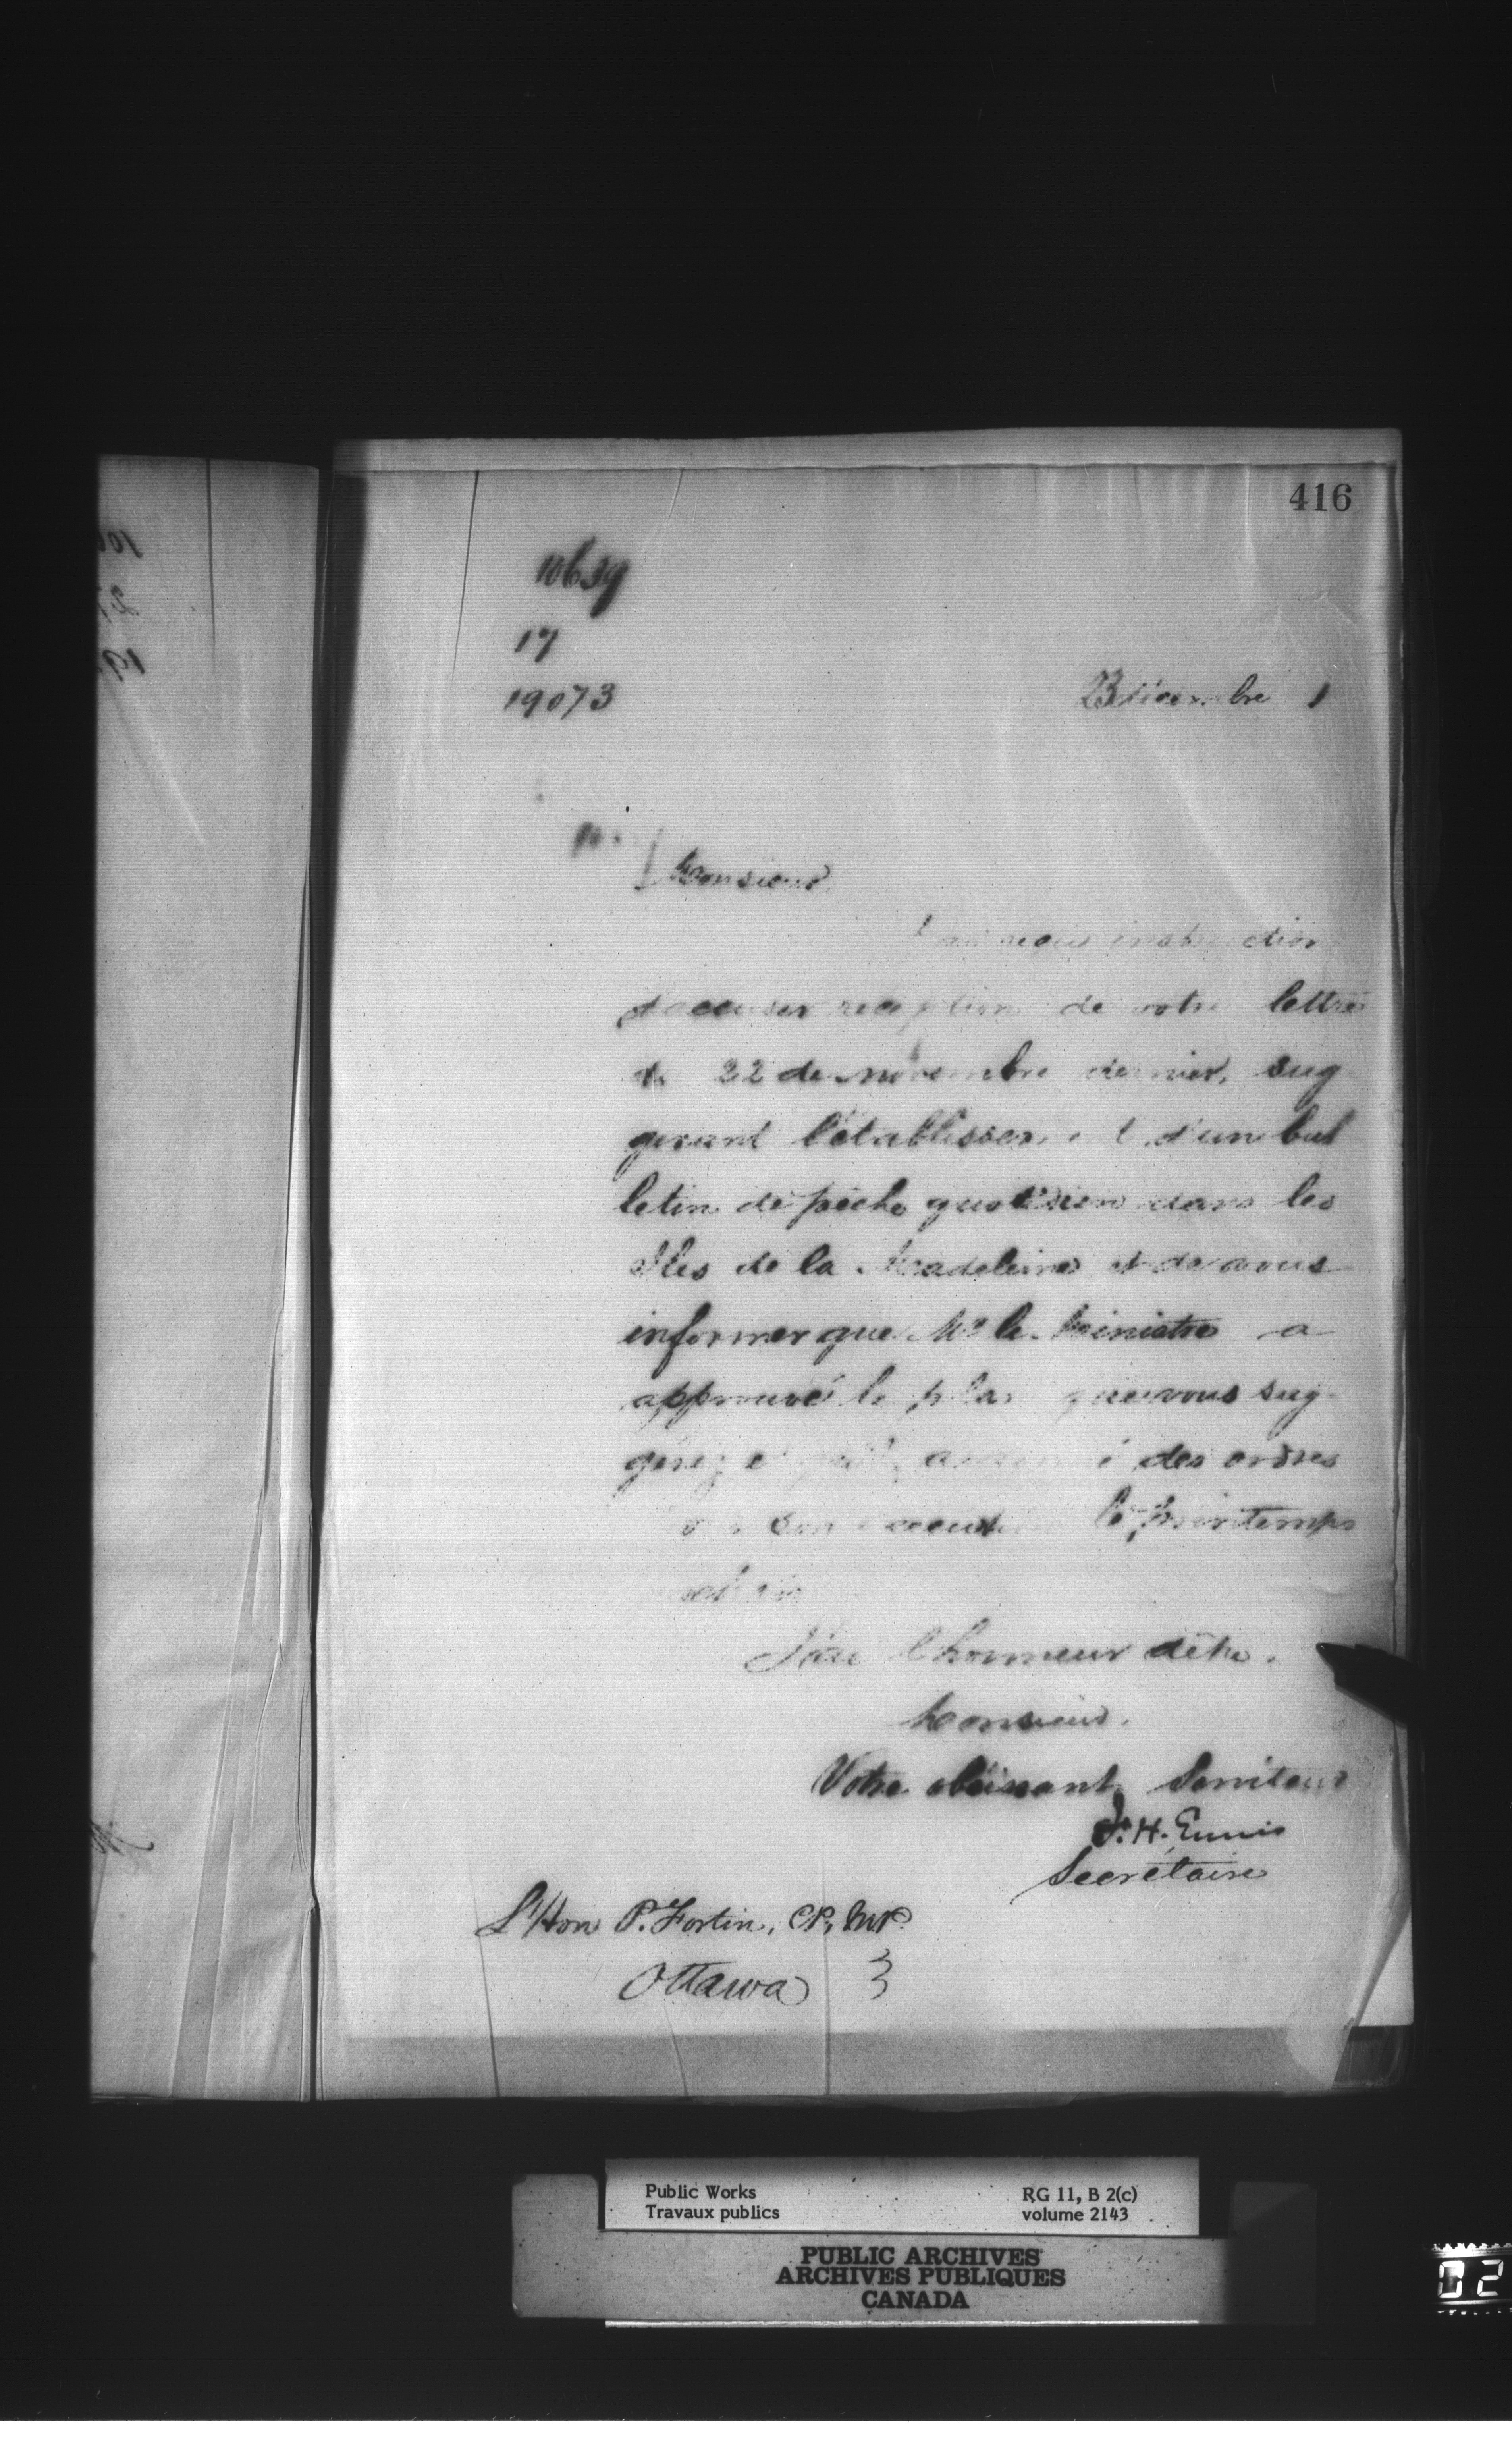 416
10639
17
19073
23 décembre 1
Monsieur
J'ai reçu instruction
d'accuser reception de votre lettre
du 22 de novembre dernier, sug
gerant l'établissement d'un bul
letin de pêche quotidien dans les
Iles de la Madeleine et de vous
informer que Mr le Ministre a
approuvé le plan que vous sug-
gérez et des ordres
son execution le printemps
J'ai l'honneur d'être.
Monsieur.
Votre obéissant Serviteur
F. H. Ennis
Secrétaire
L'Hon P. Fortin, CP, MP.
Ottawa
Public Works
Travaux publics
RG 11, B 2(c)
volume 2143
PUBLIC ARCHIVES
ARCHIVES PUBLIQUES
CANADA
02